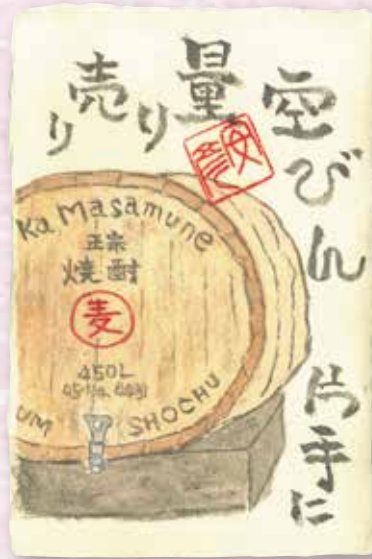 空びん 片手に
量り売り
Ka Masamune
正宗
焼酎
麦
450L
UM SHOCHU